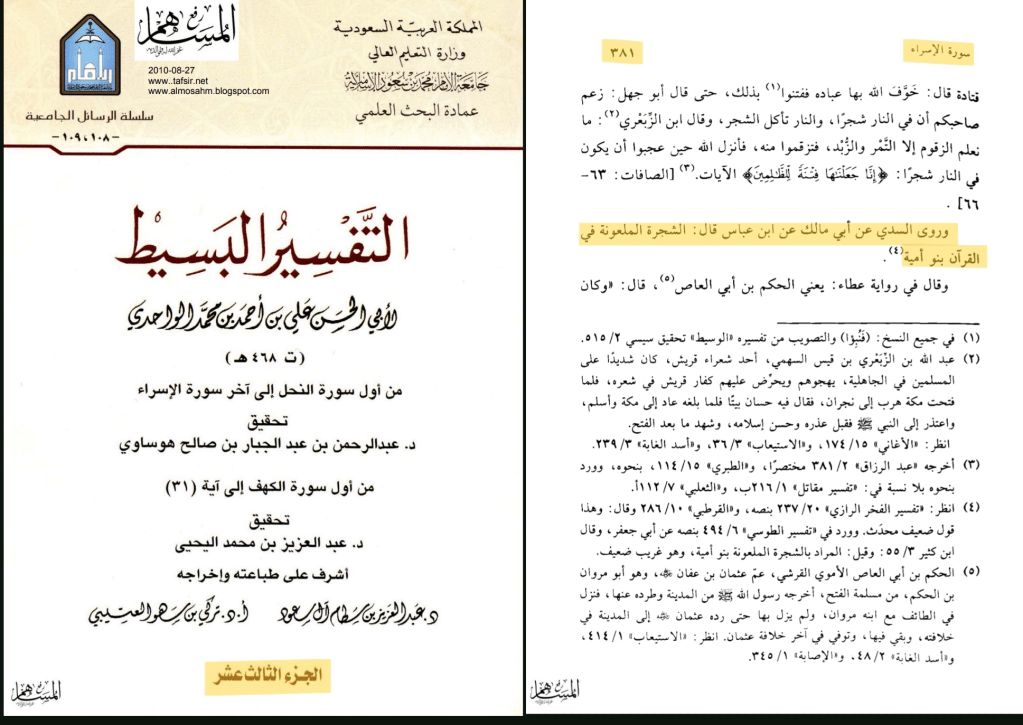 المساهم
2010-08-27
www..tafsir.net
www.almosahm.blogspot.com
المملكة العربية السعودية
وزارة التعليم العالي
جامعة الإمام محمد بن سعود الإسلامية
عمادة البحث العلمي
سلسلة الرسائل الجامعية
-١٠٩،١٠٨-
التَّفْسِيرُ البَسِيْط
لأبي الحسن علي بن أحمد بن محمد الواحدي
(ت ٤٦٨ هـ)
من أول سورة النحل إلى آخر سورة الإسراء
تحقيق
د. عبدالرحمن بن عبد الجبار بن صالح هوساوي
من أول سورة الكهف إلى آية (٣١)
تحقيق
د. عبد العزيز بن محمد اليحيى
أشرف على طباعته وإخراجه
د. عبدالعزيز بن سطام آل سعود أ.د. تركي بن سهو العتيبي
الجزء الثالث عشر
المساهم
سورة الإسراء
٣٨١
قتادة قال: خَوَّفَ الله بها عباده ففتنوا(١) بذلك، حتى قال أبو جهل: زعم
صاحبكم أن في النار شجرًا، والنار تأكل الشجر، وقال ابن الزّبَعْري(٢): ما
نعلم الزقوم إلا التَّمْر والزُّبْد، فتزقموا منه، فأنزل الله حين عجبوا أن يكون
في النار شجرًا: ﴿إِنَّا جَعَلْنَاهَا فِتْنَةً لِلظَّالِمِينَ﴾ الآيات.(٣) [الصافات: ٦٣-
٦٦] .
وروى السدي عن أبي مالك عن ابن عباس قال: الشجرة الملعونة في
القرآن بنو أمية(٤).
وقال في رواية عطاء: يعني الحكم بن أبي العاص(٥)، قال: «وكان
(١) في جميع النسخ: (فَنُبِؤا) والتصويب من تفسيره «الوسيط» تحقيق سيسي ٢/ ٥١٥.
(٢) عبد الله بن الزِّبَعْري بن قيس السهمي، أحد شعراء قريش، كان شديدًا على
المسلمين في الجاهلية، يهجوهم ويحرِّض عليهم كفار قريش في شعره، فلما
فتحت مكة هرب إلى نجران، فقال فيه حسان بيتًا فلما بلغه عاد إلى مكة وأسلم،
واعتذر إلى النبي ﷺ فقبل عذره وحسن إسلامه، وشهد ما بعد الفتح.
انظر: «الأغاني» ١٥/ ١٧٤، و«الاستيعاب» ٣/ ٣٦، و«أسد الغابة» ٣/ ٢٣٩.
(٣) أخرجه «عبد الرزاق» ٢/ ٣٨١ مختصرًا، و«الطبري» ١٥/ ١١٤، بنحوه، وورد
بنحوه بلا نسبة في: «تفسير مقاتل» ١/ ٢١٦ب، و«الثعلبي» ٧/ ١١٢أ.
(٤) انظر: «تفسير الفخر الرازي» ٢٠/ ٢٣٧ بنصه، و«القرطبي» ١٠/ ٢٨٦ وقال: وهذا
قول ضعيف محدَث. وورد في «تفسير الطوسي» ٦/ ٤٩٤ بنصه عن أبي جعفر، وقال
ابن كثير ٣/ ٥٥: وقيل: المراد بالشجرة الملعونة بنو أمية، وهو غريب ضعيف.
(٥) الحكم بن أبي العاص الأموي القرشي، عمّ عثمان بن عفان ﵁، وهو أبو مروان
بن الحكم، من مسلمة الفتح، أخرجه رسول الله ﷺ من المدينة وطرده عنها، فنزل
في الطائف مع ابنه مروان، ولم يزل بها حتى رده عثمان ﵁ إلى المدينة في
خلافته، وبقي فيها، وتوفي في آخر خلافة عثمان. انظر: «الاستيعاب» ١/ ٤١٤،
و«أسد الغابة» ٢/ ٤٨. و«الإصابة» ١/ ٣٤٥.
المساهم